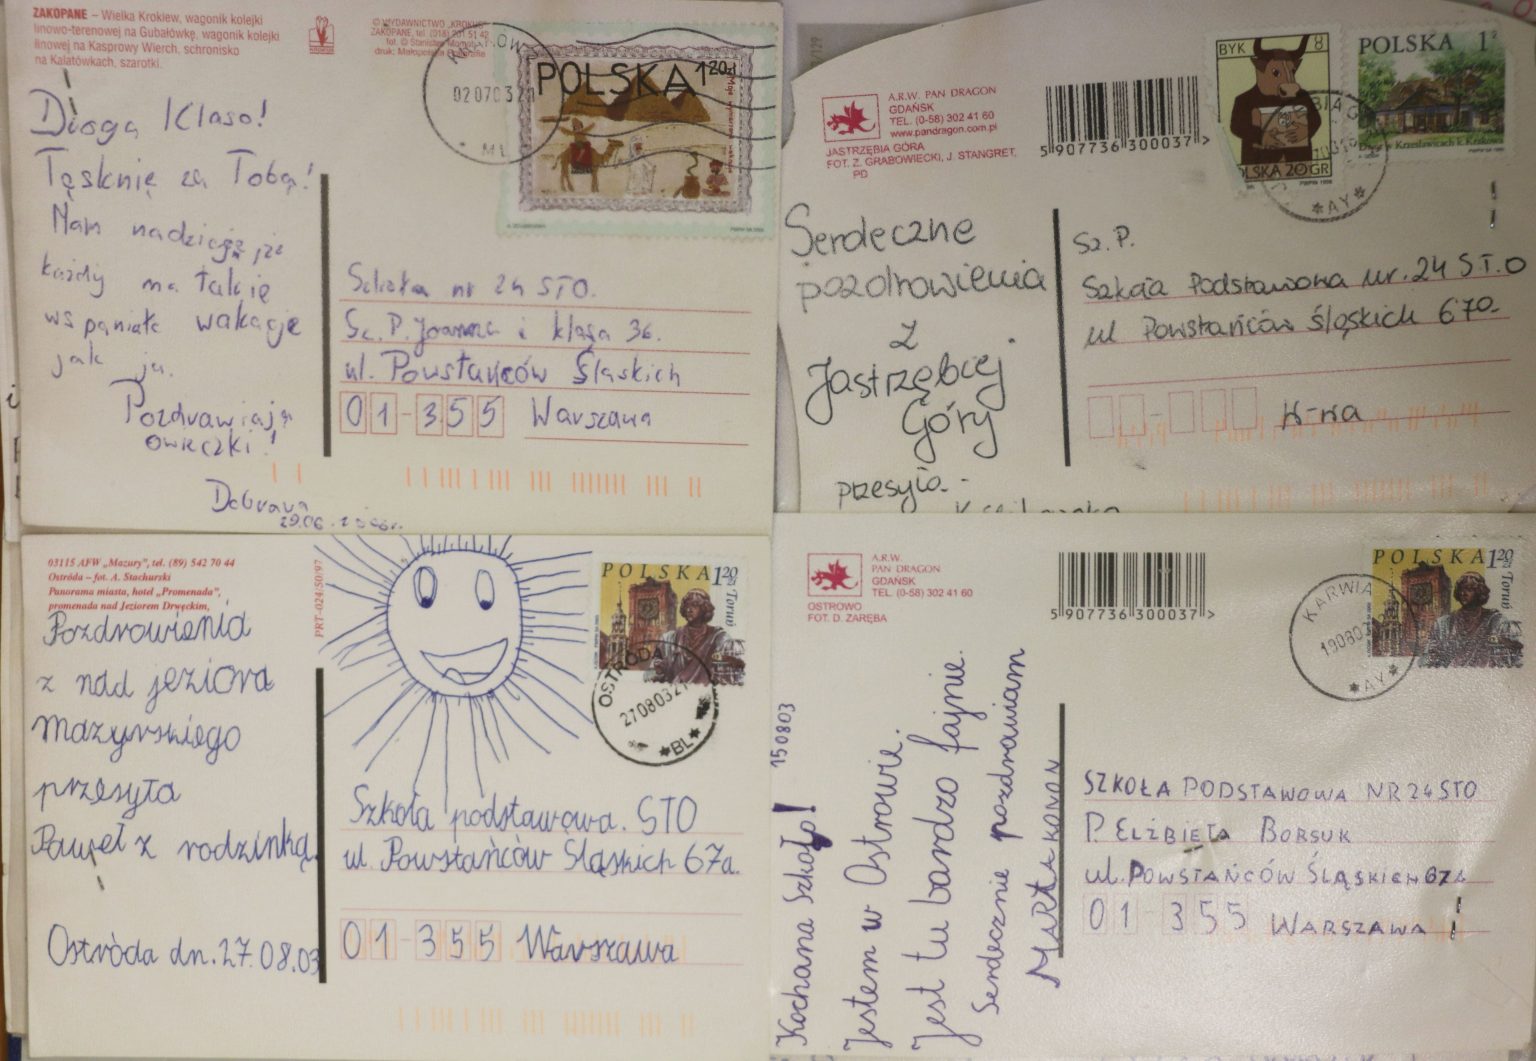 ZAKOPANE – Wielka Krokiew, wagonik kolejki
linowo-terenowej na Gubałówkę, wagonik kolejki
linowej na Kasprowy Wierch, schronisko
na Kalatówkach, szarotki.
© WYDAWNICTWO „KROKUS”
ZAKOPANE, tel. (018) 201 51 42
POLSKA 1 20zł
Droga Klaso!
Tęsknię za Tobą!
Mam nadzieję że
każdy ma takie
wspaniałe wakacje
jak ja.
Pozdrawiają
owieczki!
29.06.
Szkoła nr 24 STO.
Sz. P. Joanna i klasa 3b.
ul. Powstańców Śląskich
01-355 Warszawa
A.R.W. PAN DRAGON
GDAŃSK
TEL. (0-58) 302 41 60
www.pandragon.com.pl
JASTRZĘBIA GÓRA
FOT. Z. GRABOWIECKI, J. STANGRET,
PD
5 907736 300037 >
BYK
POLSKA 20GR
POLSKA 1
*AY*
Serdeczne
pozdrowienia
z
Jastrzębiej
Góry
przesyła
Sz. P.
Szkoła Podstawowa nr. 24 S.T.O
ul Powstańców Śląskich 67a.
W-wa
03115 AFW „Mazury”, tel. (89) 542 70 44
Ostróda – fot. A. Stachurski
Panorama miasta, hotel „Promenada”,
promenada nad Jeziorem Drwęckim,
PRT-024/50/97
POLSKA 120zł
Toruń
OSTRÓDA
270803
*BL*
Pozdrowienia
z nad jeziora
mazurskiego
przesyła
Paweł z rodzinką.
Ostróda dn. 27.08.03
Szkoła podstawowa. STO
ul. Powstańców Śląskich 67a.
01-355 Warszawa
A.R.W.
PAN DRAGON
GDAŃSK
TEL. (0-58) 302 41 60
OSTROWO
FOT. D. ZARĘBA
5 907736 300037 >
POLSKA 120zł
Toruń
KARWIA
190803
*AY*
150803
Kochana Szkoło!
Jestem w Ostrowie.
Jest tu bardzo fajnie.
Serdecznie pozdrawiam
MARTA KONON
SZKOŁA PODSTAWOWA NR 24 STO
P. ELŻBIETA BORSUK
ul. POWSTAŃCÓW ŚLĄSKICH 67A
01 355 WARSZAWA